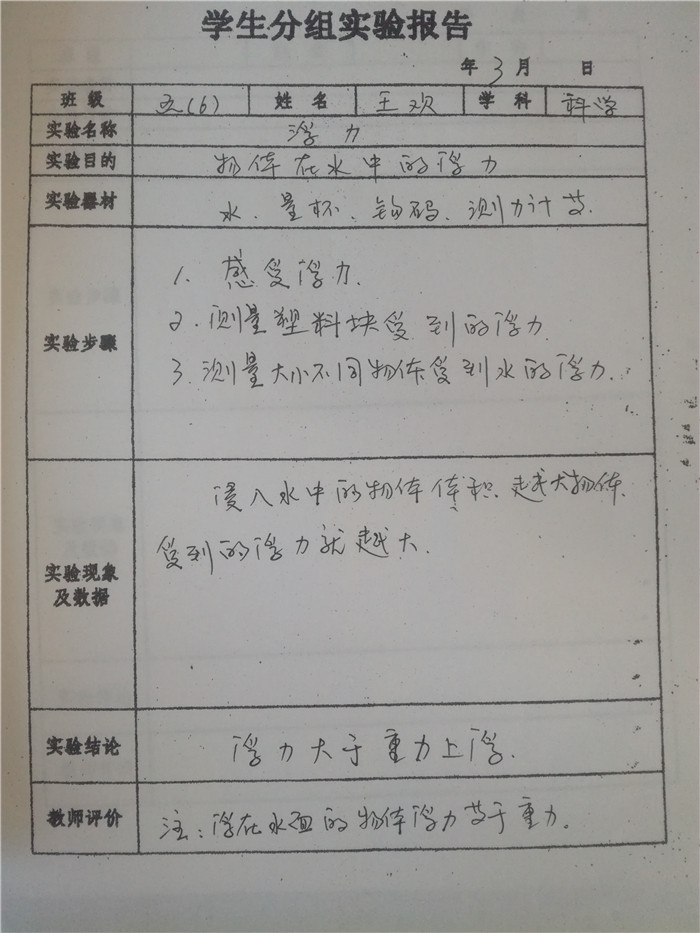 学生分组实验报告
年 3 月 日
班级 五(6) 姓名 王欢 学科 科学
实验名称 浮力
实验目的 物体在水中的浮力
实验器材 水、量杯、钩码、测力计等.
实验步骤
1. 感受浮力.
2. 测量塑料块受到的浮力
3. 测量大小不同物体受到水的浮力.
实验现象
及数据
浸入水中的物体体积越大物体
受到的浮力就越大.
实验结论 浮力大于重力上浮.
教师评价 注:浮在水面的物体浮力等于重力.